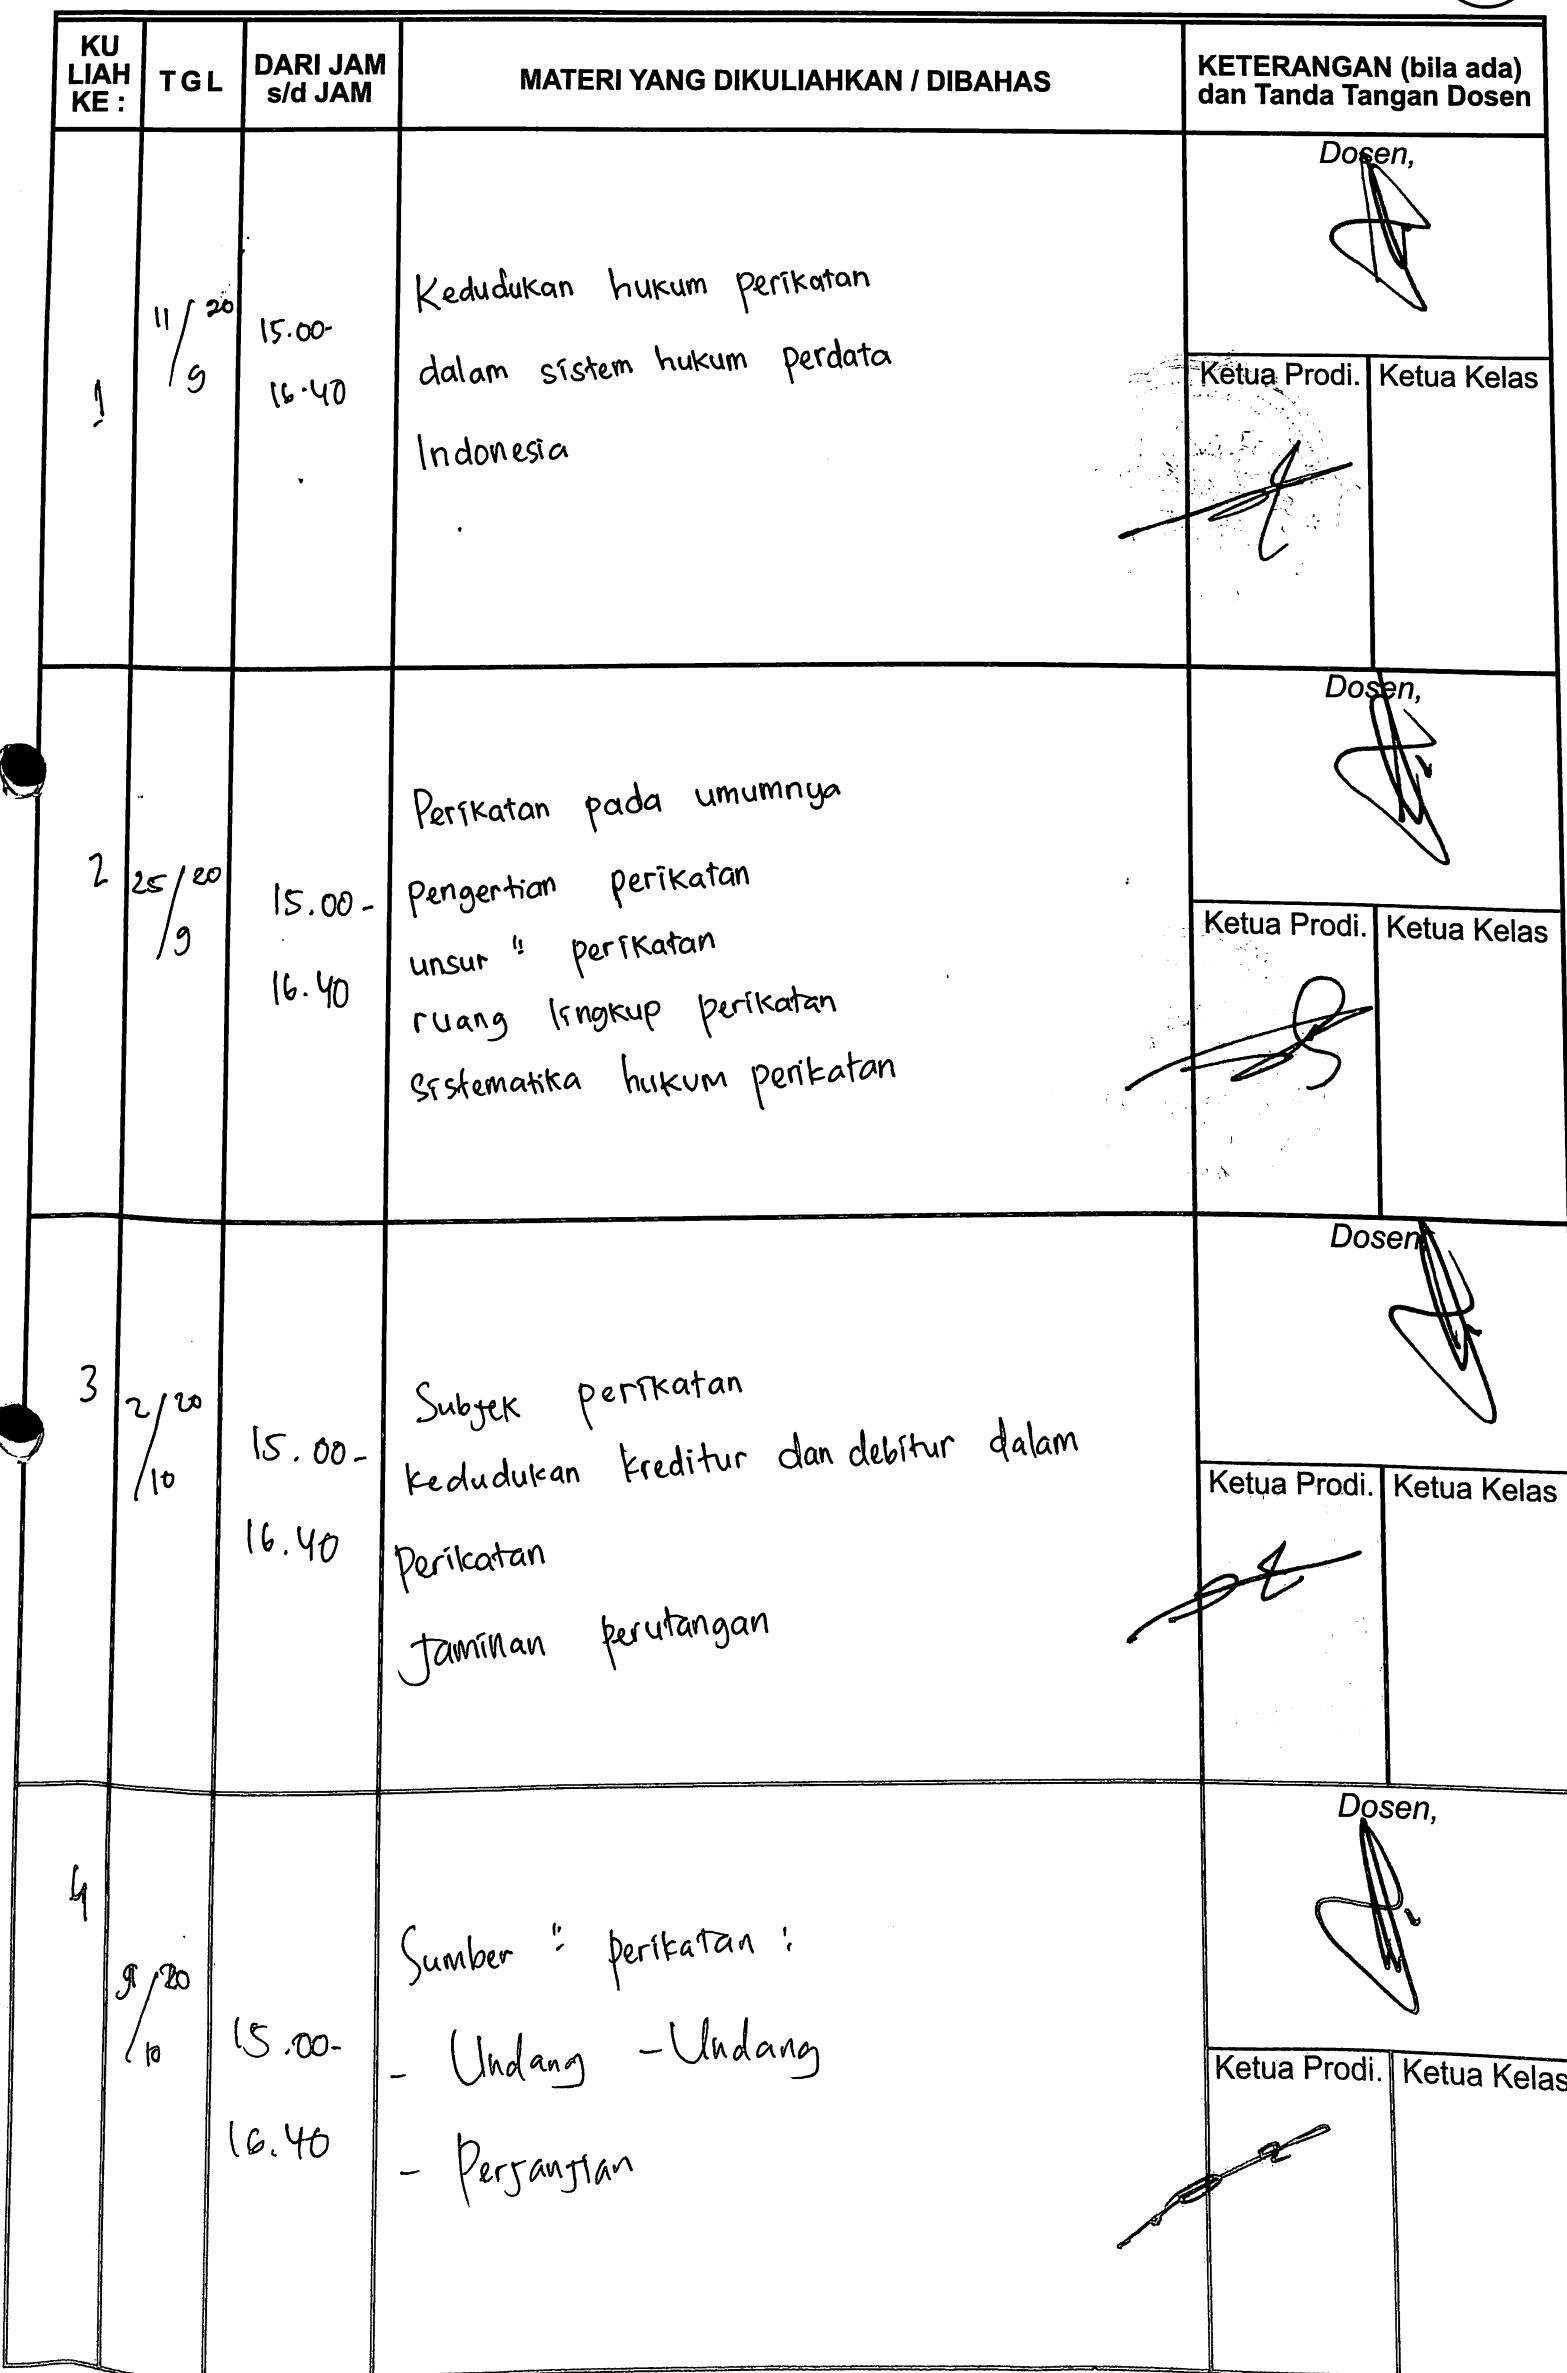 KU
LIAH
KE :
TGL
DARI JAM
s/d JAM
MATERI YANG DIKULIAHKAN / DIBAHAS
KETERANGAN (bila ada)
dan Tanda Tangan Dosen
1
11/9 20
15.00-
16.40
Kedudukan hukum perikatan
dalam sistem hukum perdata
Indonesia
Dosen,
Ketua Prodi.
Ketua Kelas
2
25/9 20
15.00-
16.40
Perikatan pada umumnya
pengertian perikatan
unsur " perikatan
ruang lingkup perikatan
sistematika hukum perikatan
Dosen,
Ketua Prodi.
Ketua Kelas
3
2/10 20
15.00-
16.40
Subjek perikatan
kedudukan kreditur dan debitur dalam
perikatan
Jaminan perutangan
Dosen
Ketua Prodi.
Ketua Kelas
4
9/10 20
15.00-
16.40
Sumber " perikatan :
- Undang - Undang
- Perjanjian
Dosen,
Ketua Prodi.
Ketua Kelas